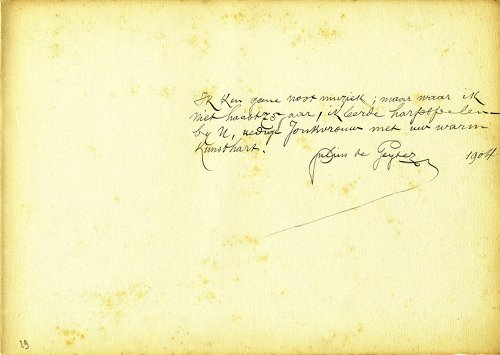 Ik ken geene noot muziek; maar waar ik
niet haast 75 jaar, ik leerde harpspelen
by U, edele Jonkvrouw met uw warm
Kunsthart.
Julius de Geyter 1904
29